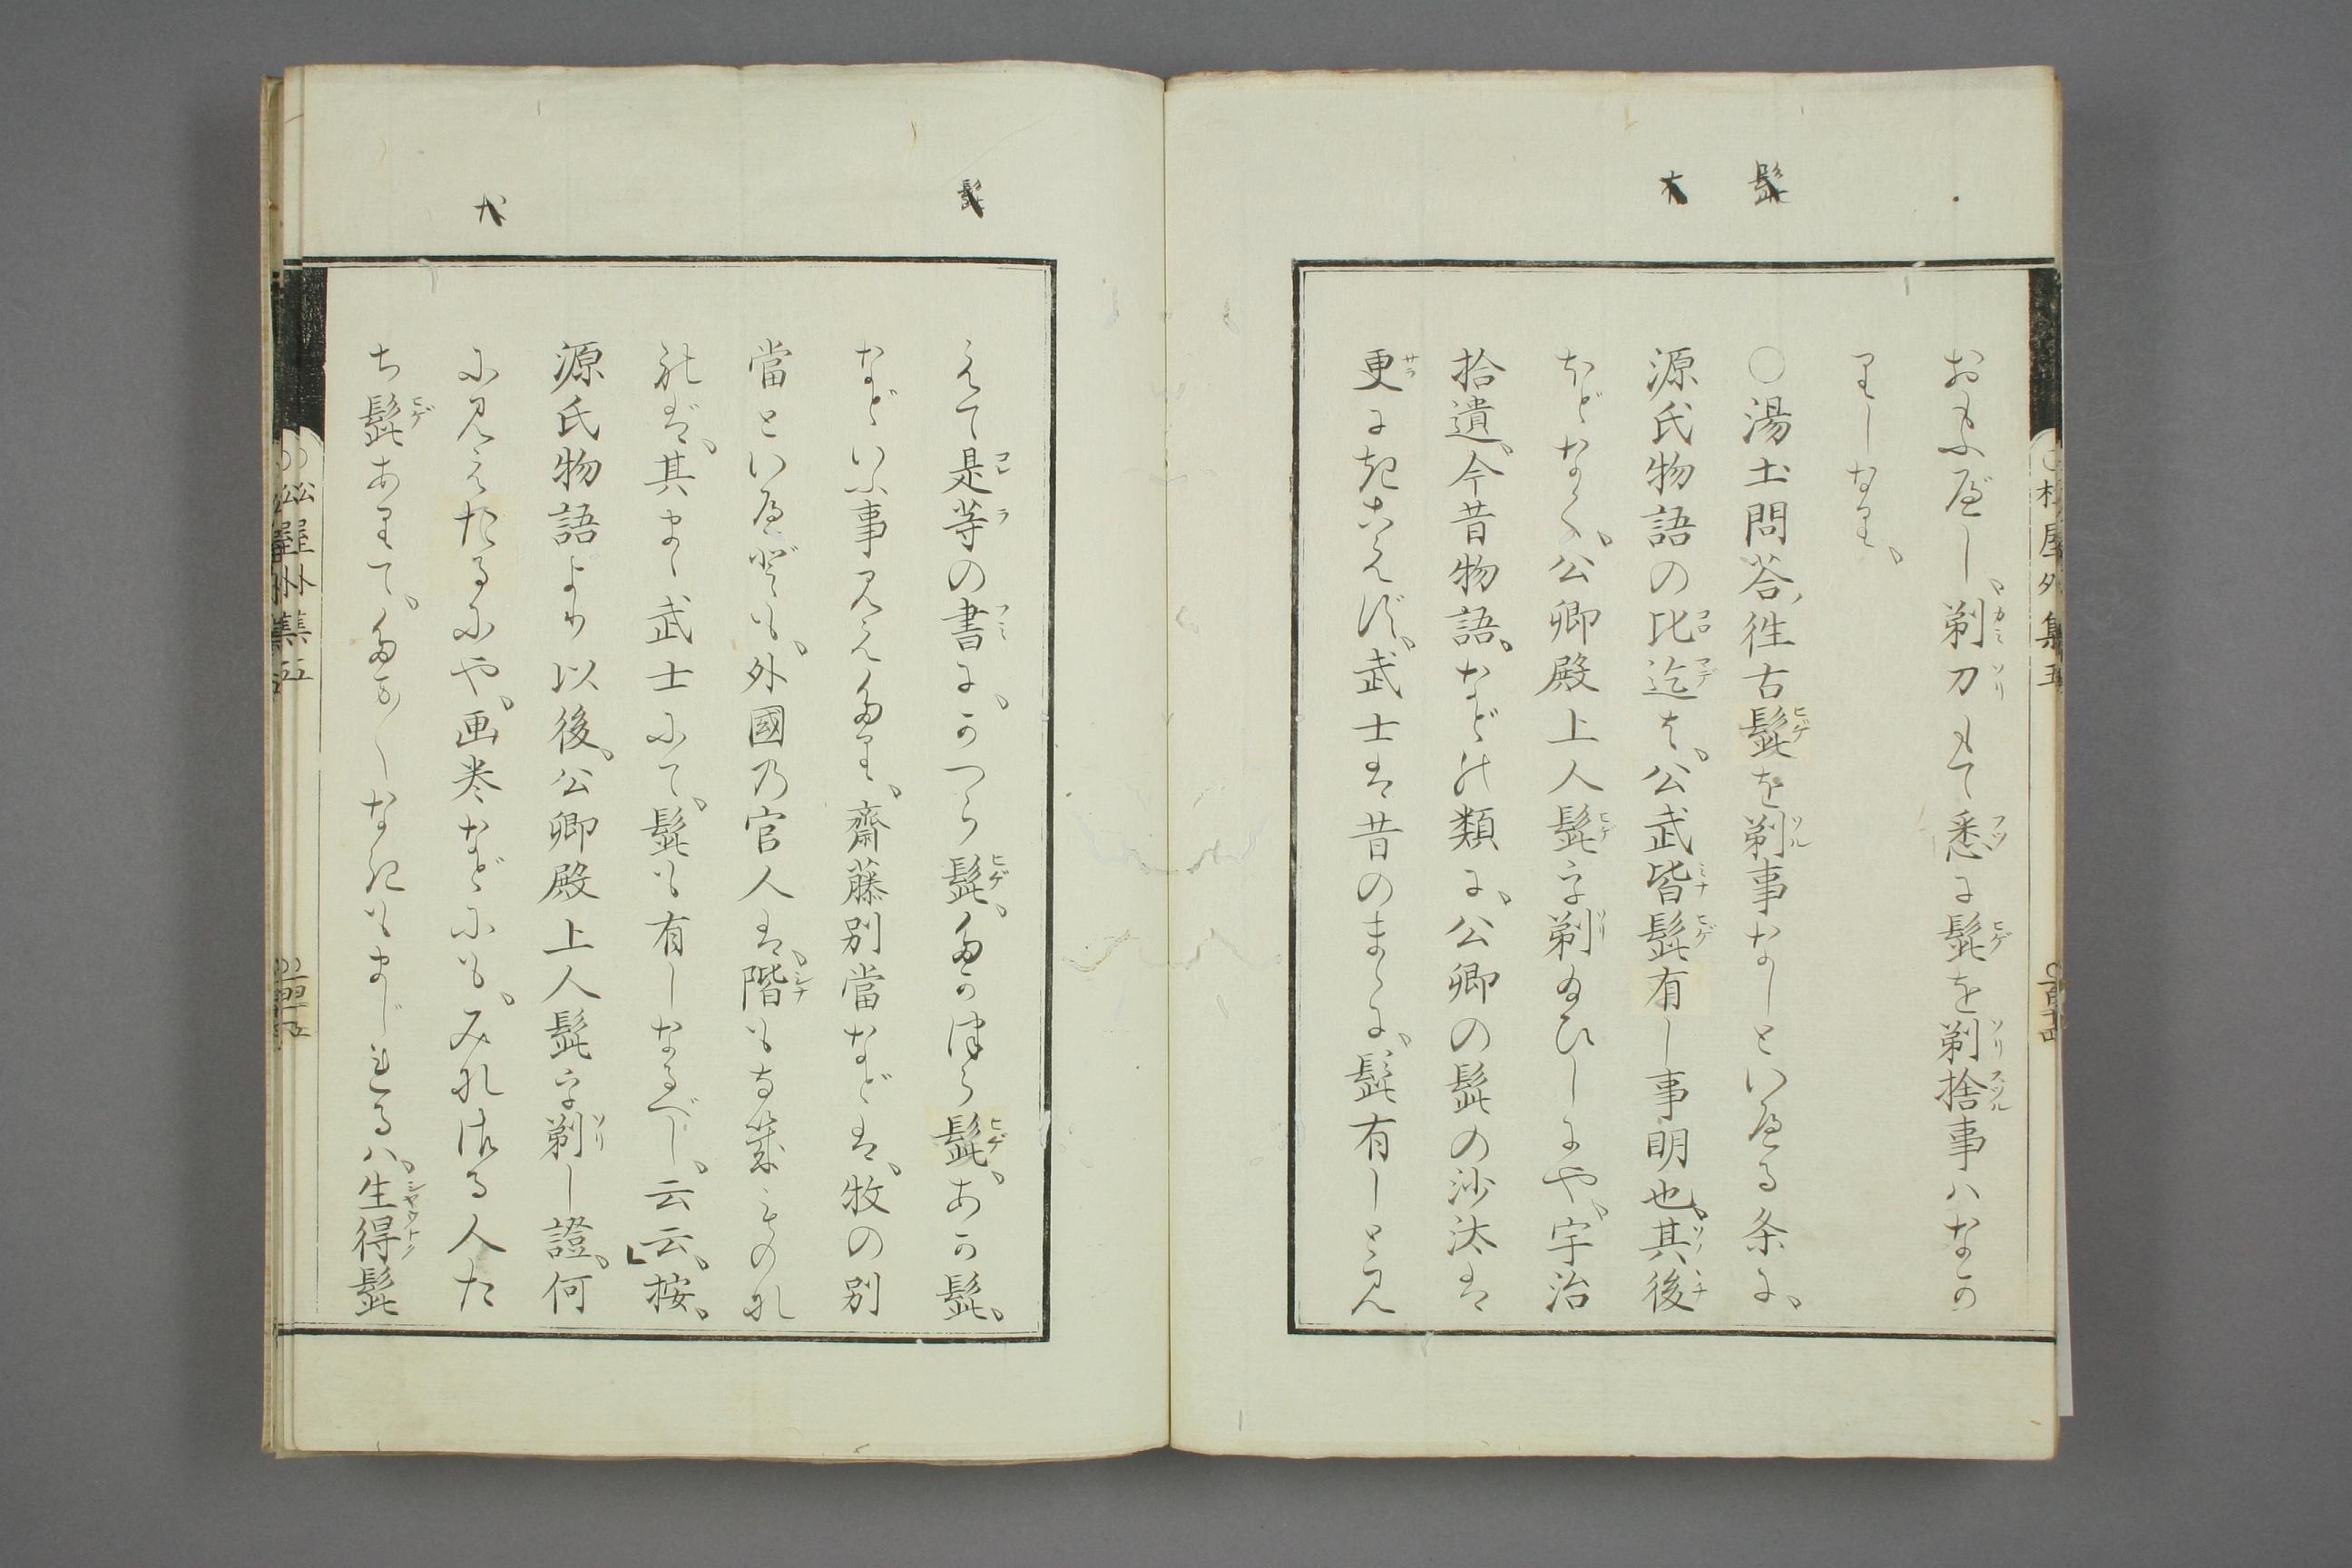 髭
大
おもふべし、剃刀もて悉に髭を剃捨事ハなか
りしなり、
○湯土問答、徃古髭を剃事なしといへる条に、
源氏物語の比迄は、公武皆髭有し事明也、其後
ほどなく、公卿殿上人髭を剃給ひしにや、宇治
拾遺、今昔物語、などの類に、公卿の髭の沙汰は
更にきこえず、武士は昔のまゝに、髭有しと見
松屋外集五
髭
えて是等の書に、かつら髭、たかつら髭、あか髭、
などいふ事見えたり、齋藤別當などは、牧の別
當といへども、外國の官人は、階も

れば、其まゝ武士にて、髭も有しなるべし、云云、」按、
源氏物語より以後、公卿殿上人髭を剃し證、何
に見えたるにや、画巻などにも、みなける人た
ち髭ありて、たま〳〵なきもまじれるハ、生得髭
松屋外集五